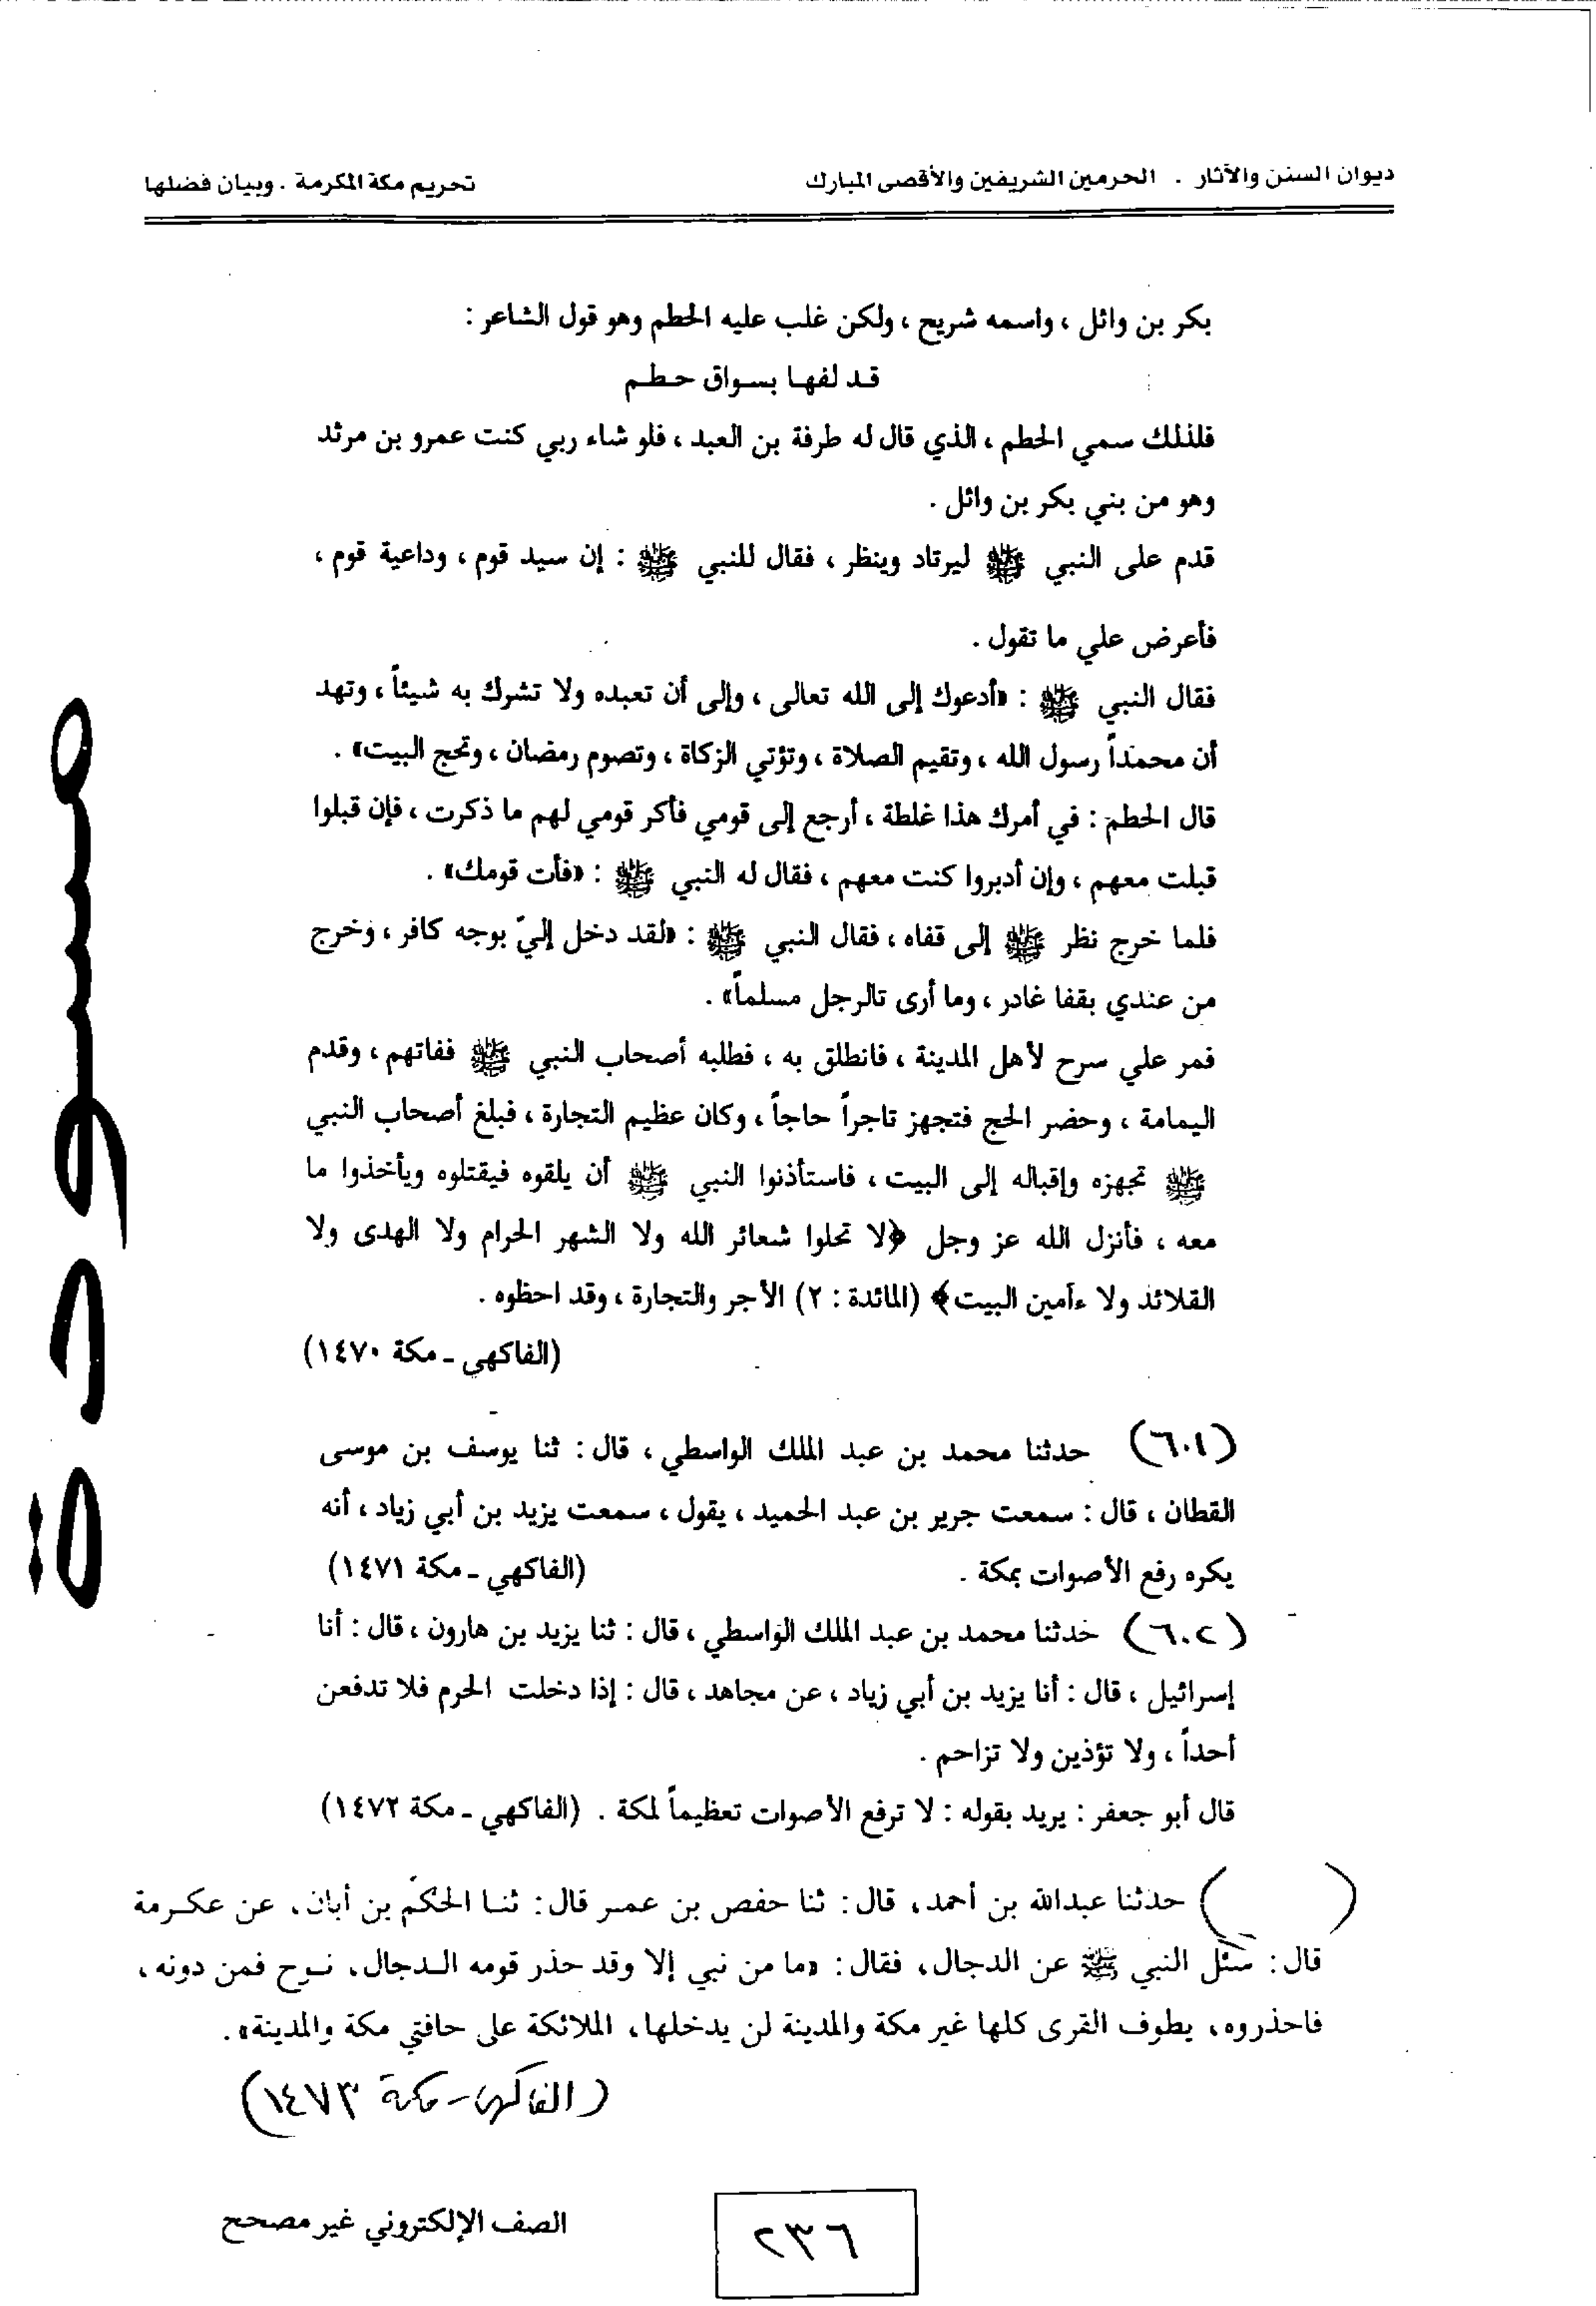 ديوان السنن والآثار . الحرمين الشريفين والأقصى المبارك
تحريم مكة المكرمة . وبيان فضلها
بكر بن وائل ، واسمه شريح ، ولكن غلب عليه الحطم وهو قول الشاعر :
قد لفها بسواق حطم
فلذلك سمي الحطم ، الذي قال له طرفة بن العبد ، فلو شاء ربي كنت عمرو بن مرثد
وهو من بني بكر بن وائل .
قدم على النبي ﷺ ليرتاد وينظر ، فقال للنبي ﷺ : إن سيد قوم ، وداعية قوم ،
فأعرض علي ما تقول .
فقال النبي ﷺ : «أدعوك إلى الله تعالى ، وإلى أن تعبده ولا تشرك به شيئاً ، وتهد
أن محمداً رسول الله ، وتقيم الصلاة ، وتؤتي الزكاة ، وتصوم رمضان ، وتحج البيت» .
قال الحطم : في أمرك هذا غلطة ، أرجع إلى قومي فأكر قومي لهم ما ذكرت ، فإن قبلوا
قبلت معهم ، وإن أدبروا كنت معهم ، فقال له النبي ﷺ : «فأت قومك» .
فلما خرج نظر ﷺ إلى قفاه ، فقال النبي ﷺ : «لقد دخل إليّ بوجه كافر ، وخرج
من عندي بقفا غادر ، وما أرى تالرجل مسلماً» .
فمر علي سرح لأهل المدينة ، فانطلق به ، فطلبه أصحاب النبي ﷺ ففاتهم ، وقدم
اليمامة ، وحضر الحج فتجهز تاجراً حاجاً ، وكان عظيم التجارة ، فبلغ أصحاب النبي
ﷺ تجهزه وإقباله إلى البيت ، فاستأذنوا النبي ﷺ أن يلقوه فيقتلوه ويأخذوا ما
معه ، فأنزل الله عز وجل ﴿لا تحلوا شعائر الله ولا الشهر الحرام ولا الهدى ولا
القلائد ولا ءآمين البيت﴾ (المائدة : ٢) الأجر والتجارة ، وقد احظوه .
(الفاكهي ـ مكة ١٤٧٠)
(٦٠١) حدثنا محمد بن عبد الملك الواسطي ، قال : ثنا يوسف بن موسى
القطان ، قال : سمعت جرير بن عبد الحميد ، يقول ، سمعت يزيد بن أبي زياد ، أنه
يكره رفع الأصوات بمكة . (الفاكهي ـ مكة ١٤٧١)
(٦٠٢) حدثنا محمد بن عبد الملك الواسطي ، قال : ثنا يزيد بن هارون ، قال : أنا
إسرائيل ، قال : أنا يزيد بن أبي زياد ، عن مجاهد ، قال : إذا دخلت الحرم فلا تدفعن
أحداً ، ولا تؤذين ولا تزاحم .
قال أبو جعفر : يريد بقوله : لا ترفع الأصوات تعظيماً لمكة . (الفاكهي ـ مكة ١٤٧٢)
( ) حدثنا عبدالله بن أحمد، قال: ثنا حفص بن عمر قال: ثنا الحكم بن أبان، عن عكرمة
قال: سئل النبي ﷺ عن الدجال، فقال: «ما من نبي إلا وقد حذر قومه الدجال، نوح فمن دونه،
فاحذروه، يطوف القرى كلها غير مكة والمدينة لن يدخلها، الملائكة على حافتي مكة والمدينة».
(الفاكهي - مكة ١٤٧٣)
الصف الإلكتروني غير مصحح
٢٣٦
مسودة